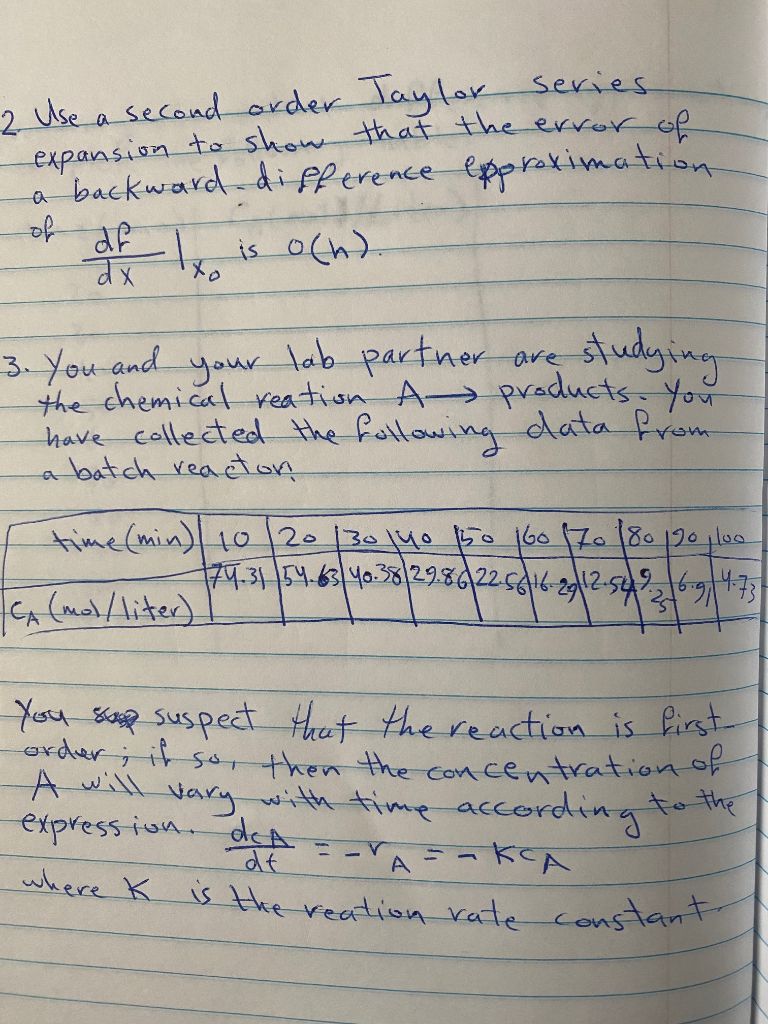 2 Use a second order Taylor series
expansion to show that the error of
a backward-difference epproximation
of df/dx |x₀ is O(h).
3. You and your lab partner are studying
the chemical reation A → products. You
have collected the following data from
a batch reactor:
time (min) | 10 | 20 | 30 | 40 | 50 | 60 | 70 | 80 | 90 | 100
CA (mol/liter) | 74.31 | 54.63 | 40.38 | 29.86 | 22.56 | 16.29 | 12.54 | 9.25 | 6.91 | 4.73
You suspect that the reaction is first-
order; if so, then the concentration of
A will vary with time according to the
expression. dcA/dt = -rA = - KCA
where K is the reation rate constant.